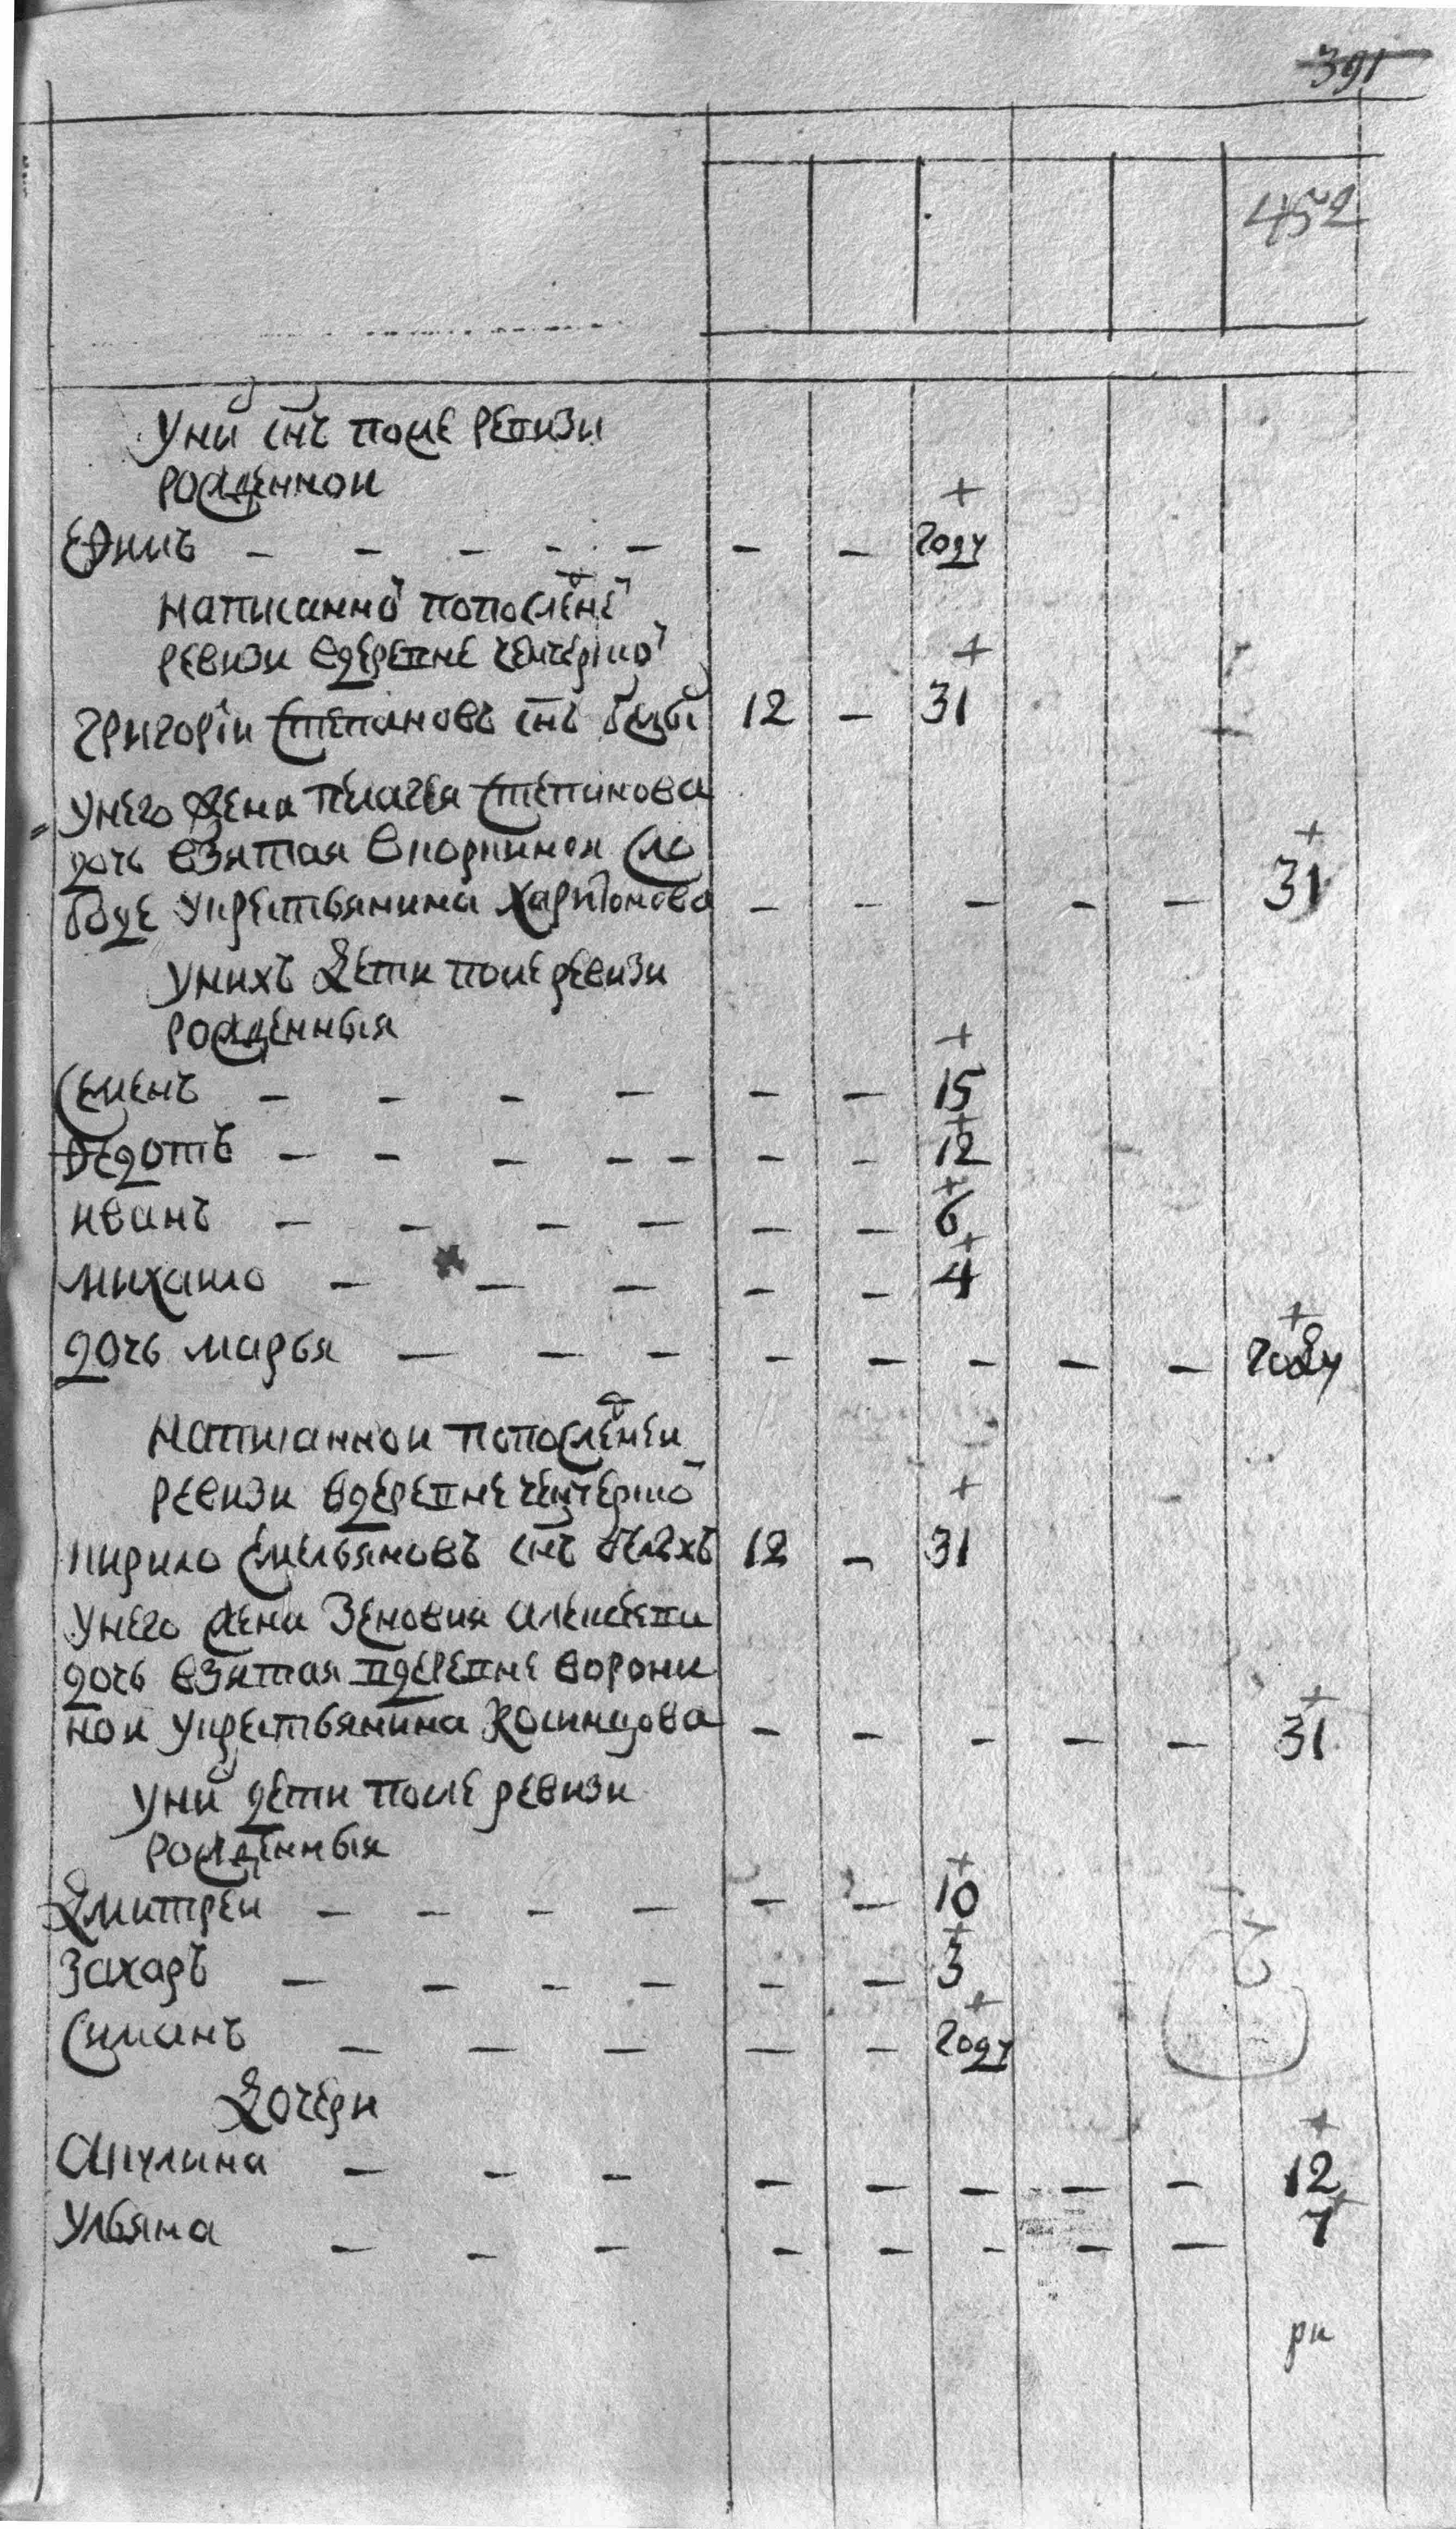 391
452
Уних снъ после ревизи
рожденнои
Ефимъ — — — — — — — году
написанной попоследней
ревизи вдеревне
григории степановъ снъ 12 — 31
унего жена пелагея степанова
дочь взятая в сло
боде укрестьянина харитонова — — — — — 31
унихъ дети после ревизи
рожденныя
семенъ — — — — — — 15
федотъ — — — — — — — 12
иванъ — — — — — — 6
михаило — — — — — 4
дочь марья — — — — — — — — году
написаннои попоследнеи
ревизи вдеревне
кирило емельяновъ снъ белыхъ 12 — 31
унего жена зеновия алексеева
дочь взятая вдеревне ворони
нои укрестьянина косинцова — — — — — 31
уних дети после ревизи
рожденныя
Дмитреи — — — — — — 10
захаръ — — — — — — 3
симанъ — — — — — году
Дочери
Акулина — — — — — — — — 12
Ульяна — — — — — — — — 7